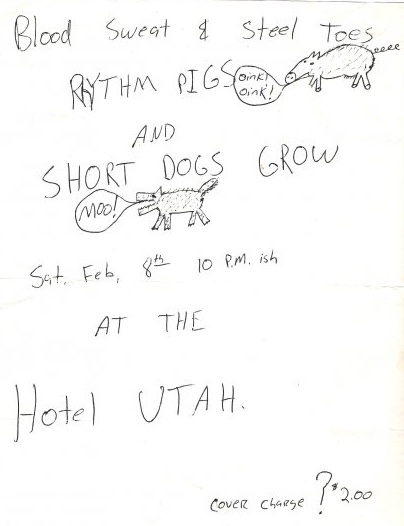 Blood Sweat & Steel Toes
RHYTHM PIGS
OINK!
OINK!
eeee
AND
SHORT DOGS GROW
MOO!
Sat. Feb, 8th 10 P.M. ish
AT THE
Hotel UTAH.
COVER CHARGE ? $2.00